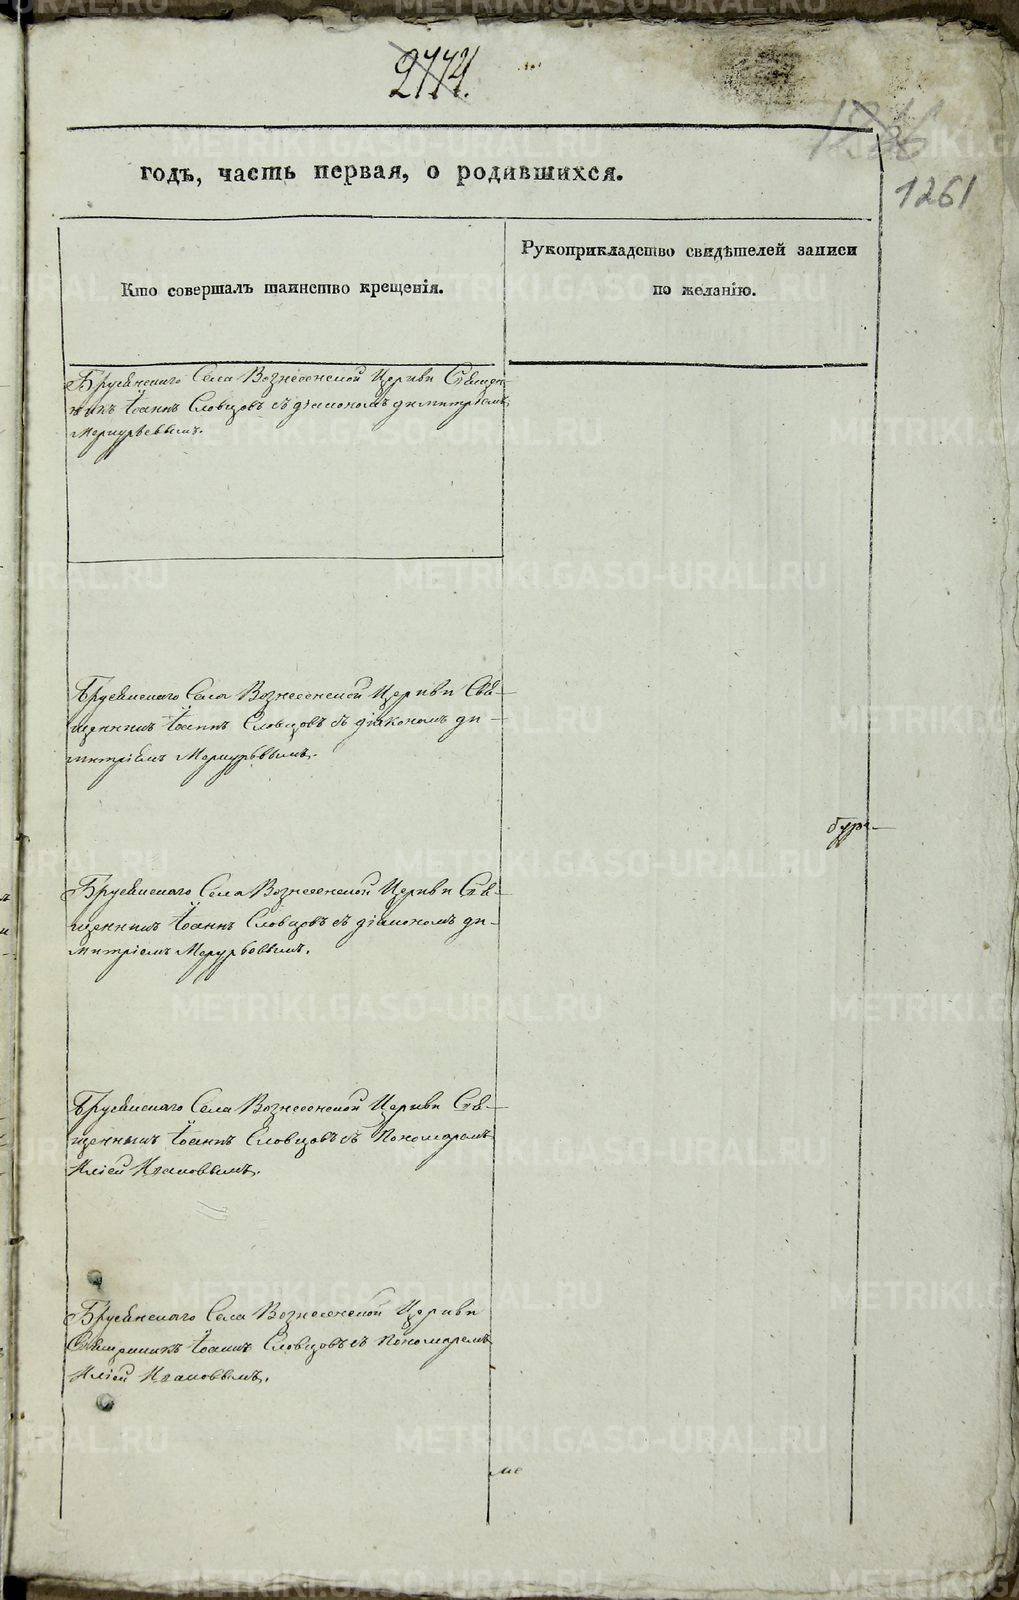 2774.
1261
годъ, часть первая, о родившихся.
Кто совершалъ таинство крещенія.
Рукоприкладство свидѣтелей записи
по желанію.
Бруснянского Села Вознесенской Церкви Священ-
никъ Іоаннъ Словцовъ съ діакономъ димитріемъ
Меркурьевымъ.
Бруснянского Села Вознесенской Церкви Свя-
щенникъ Іоаннъ Словцовъ съ діакономъ ди-
митріемъ Меркурьевымъ.
Бруснянского Села Вознесенской Церкви Свя-
щенникъ Іоаннъ Словцовъ съ діакономъ ди-
митріемъ Меркурьевымъ.
Бруснянского Села Вознесенской Церкви Свя-
щенникъ Іоаннъ Словцовъ съ Пономаремъ
Иліей
Бруснянского Села Вознесенской Церкви
Священникъ Іоаннъ Словцовъ съ Пономаремъ
Иліей
METRIKI.GASO-URAL.RU